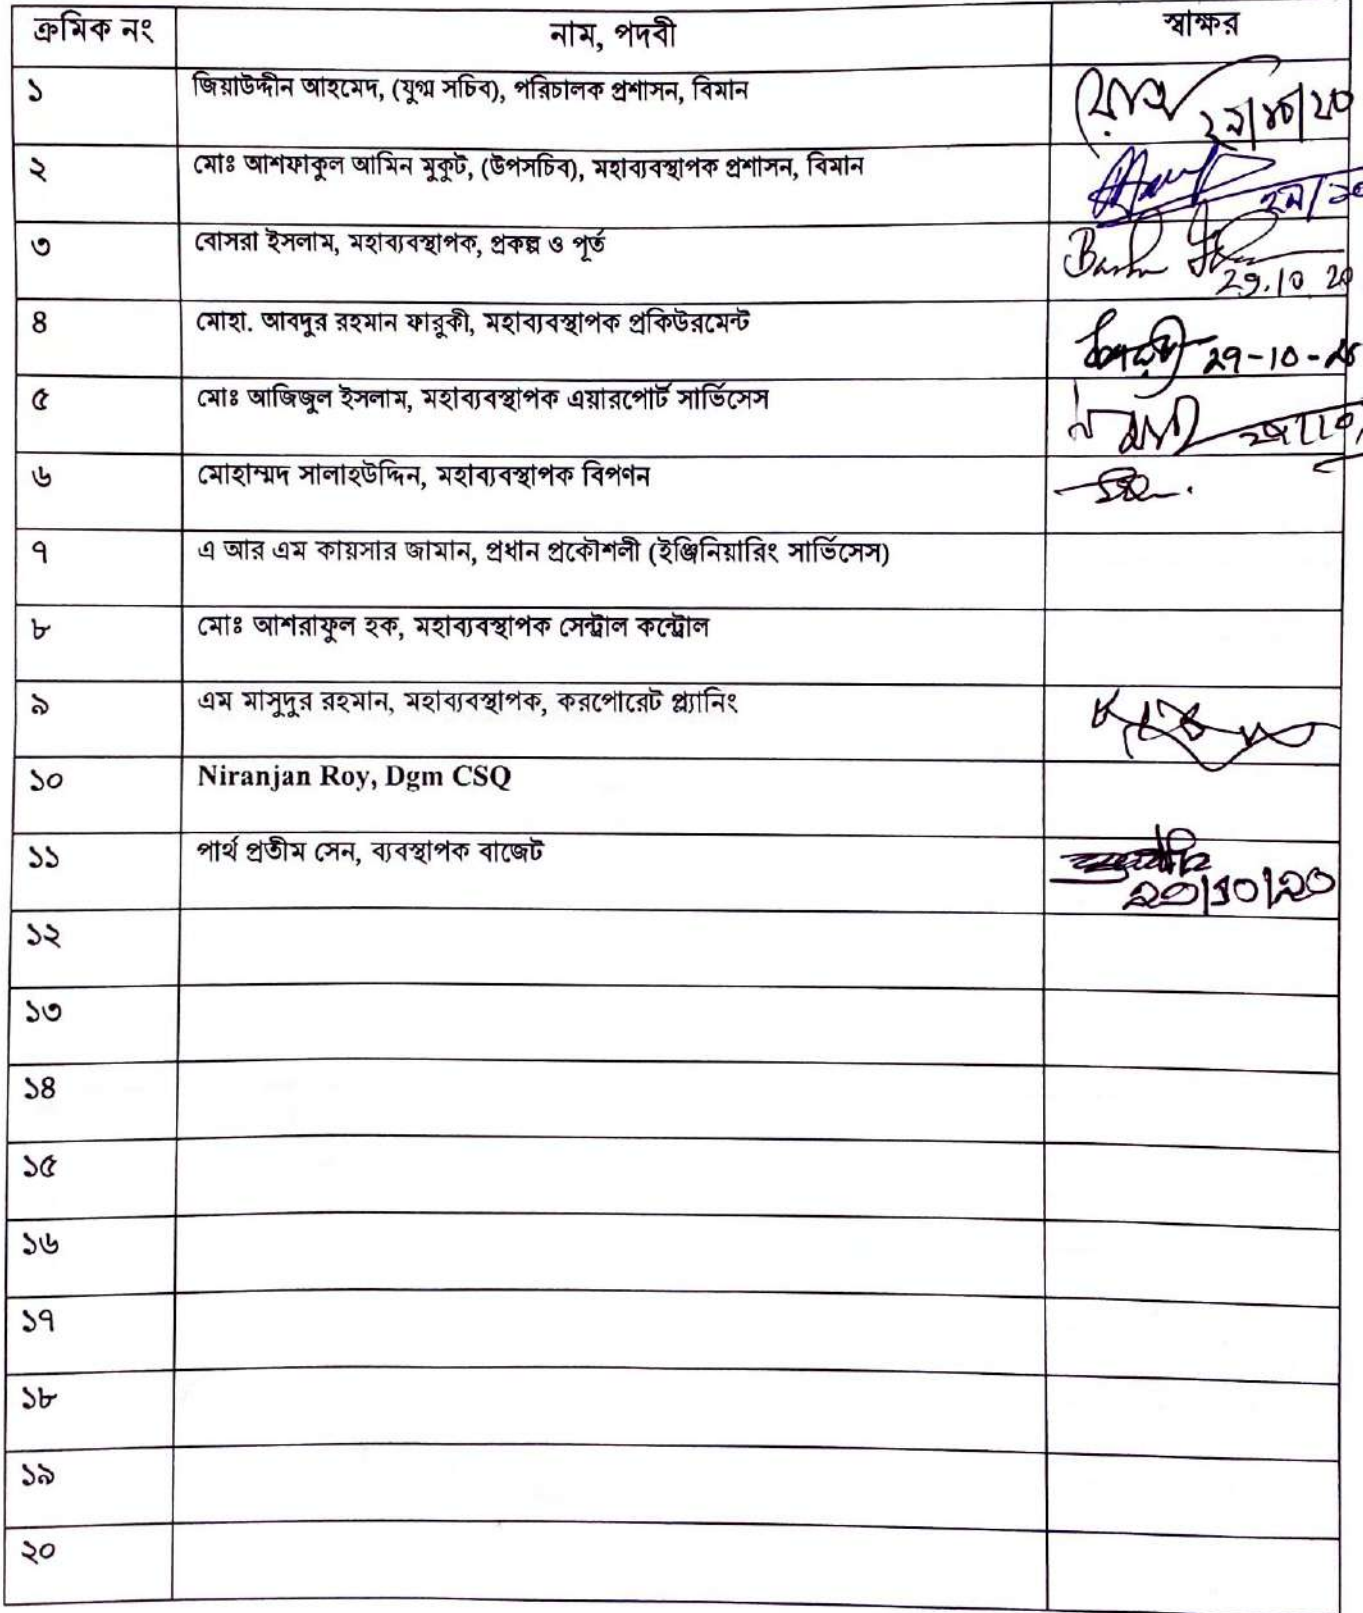 ক্রমিক নং নাম, পদবী স্বাক্ষর
১ জিয়াউদ্দীন আহমেদ, (যুগ্ম সচিব), পরিচালক প্রশাসন, বিমান
২ মোঃ আশফাকুল আমিন মুকুট, (উপসচিব), মহাব্যবস্থাপক প্রশাসন, বিমান
৩ বোসরা ইসলাম, মহাব্যবস্থাপক, প্রকল্প ও পূর্ত
29.10 20
৪ মোহা. আবদুর রহমান ফারুকী, মহাব্যবস্থাপক প্রকিউরমেন্ট 29-10-20
৫ মোঃ আজিজুল ইসলাম, মহাব্যবস্থাপক এয়ারপোর্ট সার্ভিসেস
৬ মোহাম্মদ সালাহউদ্দিন, মহাব্যবস্থাপক বিপণন
৭ এ আর এম কায়সার জামান, প্রধান প্রকৌশলী (ইঞ্জিনিয়ারিং সার্ভিসেস)
৮ মোঃ আশরাফুল হক, মহাব্যবস্থাপক সেন্ট্রাল কন্ট্রোল
৯ এম মাসুদুর রহমান, মহাব্যবস্থাপক, করপোরেট প্ল্যানিং
১০ Niranjan Roy, Dgm CSQ
১১ পার্থ প্রতীম সেন, ব্যবস্থাপক বাজেট
১২
১৩
১৪
১৫
১৬
১৭
১৮
১৯
২০